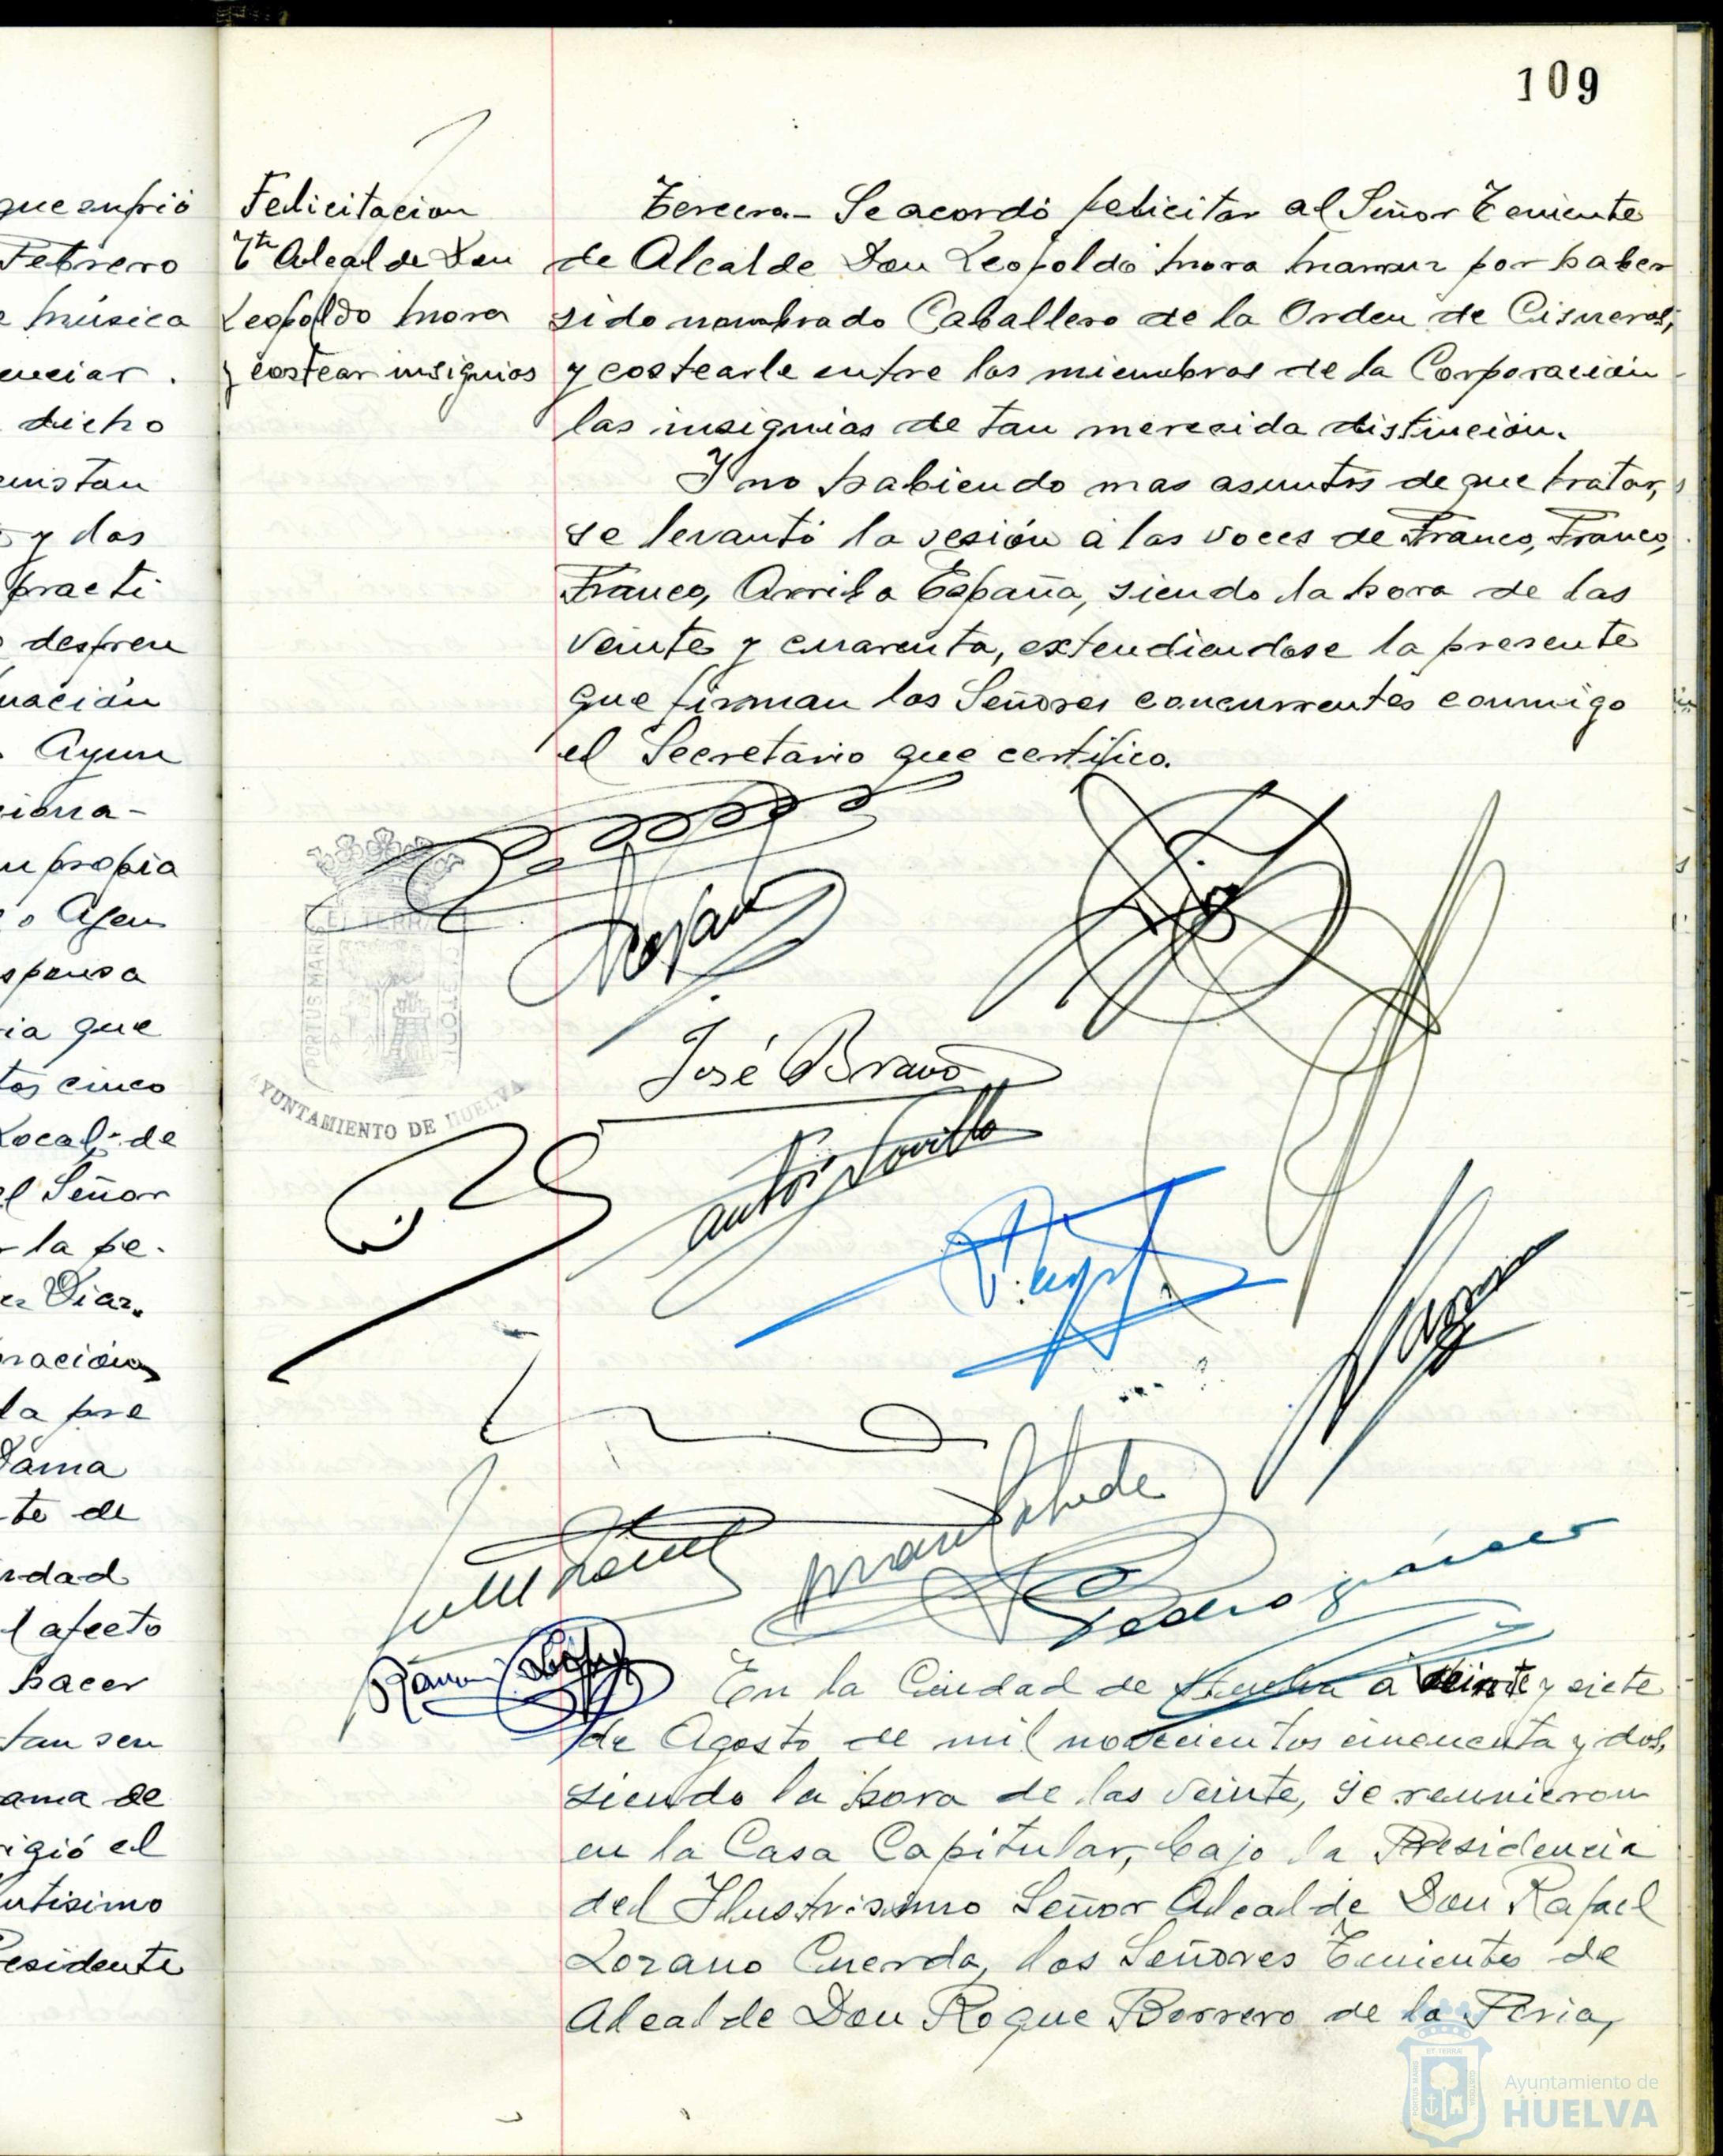 109
que sufrió
Febrero
e música
enciar.
dicho
enistan
y dos
practi
despren
nación
Ayun
siona-
n propia
o Agen
spensa
ria que
tos cinco
Local de
el Señor
la pe-
ez Diaz.
oración
la pre
Dáma
te de
rdad
l afecto
hacer
tan sen
ama de
rigió el
ntisimo
residente
Felicitacion
Tte Alcalde Don
Leopoldo Mora
y costear insignias
Tercera.- Se acordó felicitar al Señor Teniente
de Alcalde Don Leopoldo Mora por haber
sido nombrado Caballero de la Orden de Cisneros,
y costearle entre los miembros de la Corporación
las insignias de tan merecida distinción.
Y no habiendo mas asuntos de que tratar,
se levantó la sesión a las voces de Franco, Franco,
Franco, Arriba España, siendo la hora de las
veinte y cuarenta, extendiendose la presente
que firman los Señores concurrentes conmigo
el Secretario que certifico.
PORTUS MARIS ET TERRAE CUSTODIA
AYUNTAMIENTO DE HUELVA
José Bravo
En la Ciudad de Huelva a veinte y siete
de Agosto de mil novecientos cincuenta y dos,
siendo la hora de las veinte, se reunieron
en la Casa Capitular, bajo la Presidencia
del Ilustrisimo Señor Alcalde Don Rafael
Lozano Cuerda, los Señores Tenientes de
Alcalde Don Roque Borrero de la Feria,
Ayuntamiento de
HUELVA